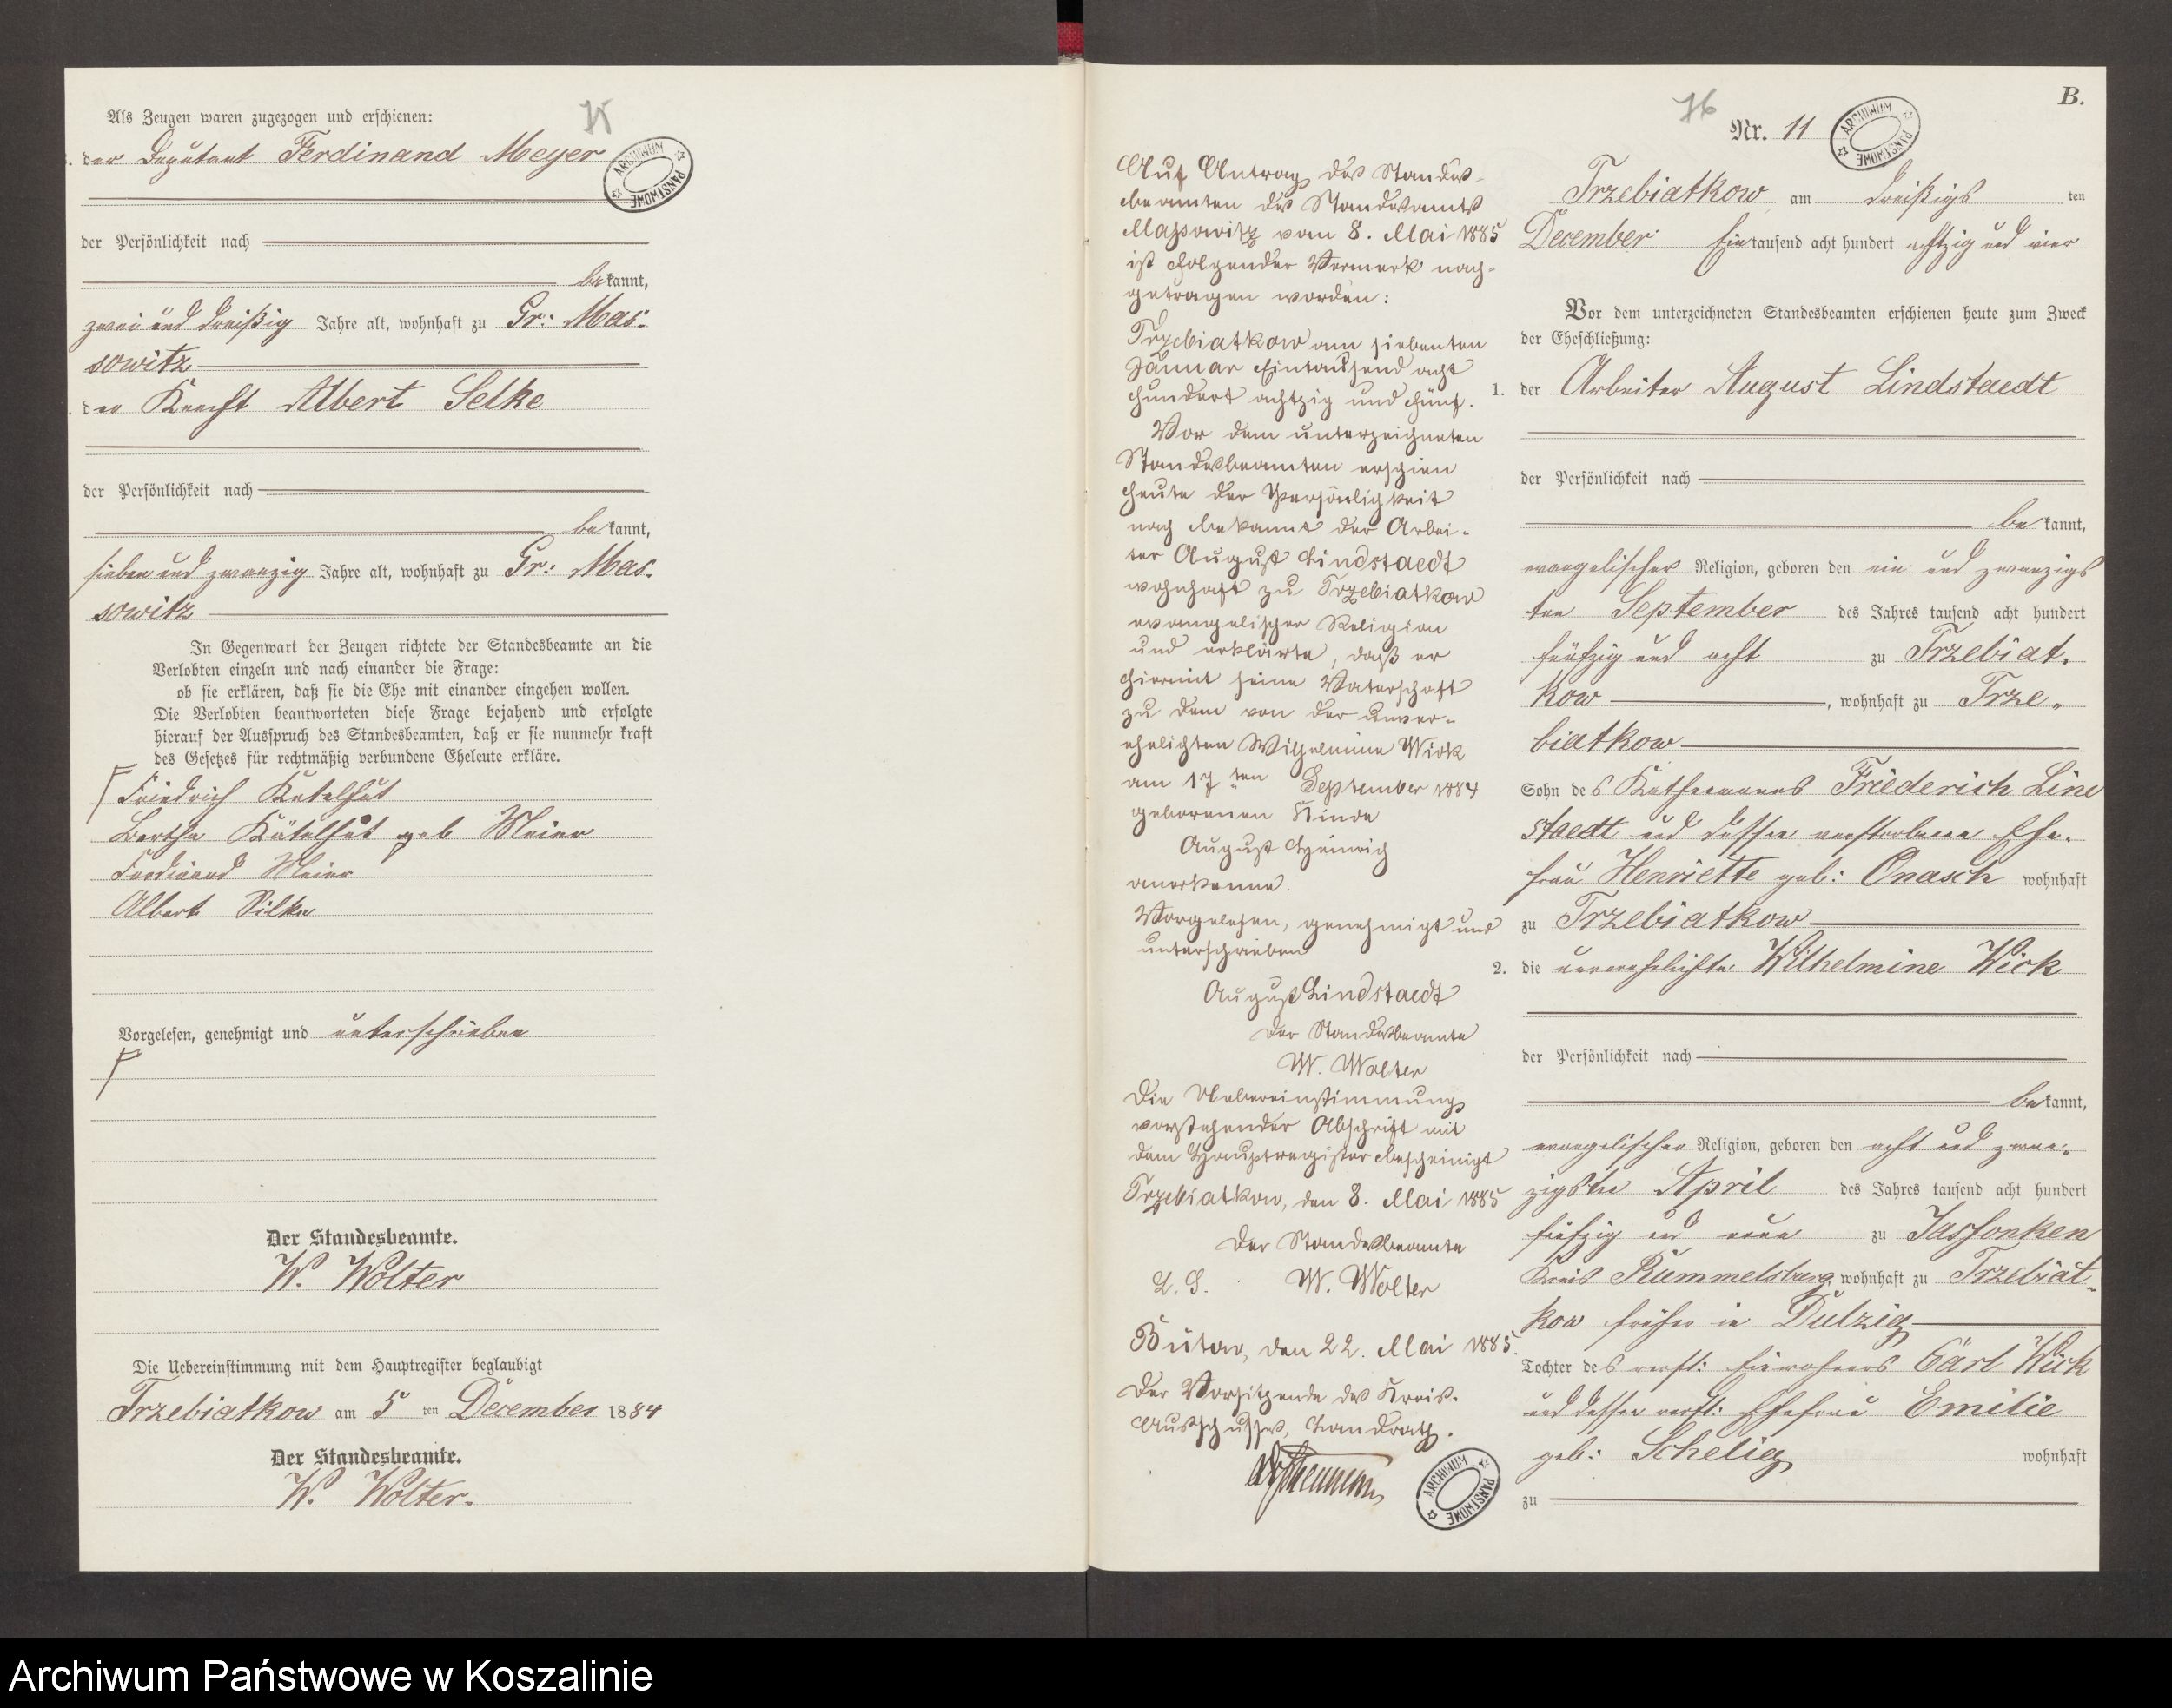 75
Als Zeugen waren zugezogen und erschienen:
der Deputant Ferdinand Meyer
ARCHIWUM PAŃSTWOWE
der Persönlichkeit nach
bekannt,
zwei und dreißig Jahre alt, wohnhaft zu Gr: Mas-
sowitz
der Knecht Albert Selke
der Persönlichkeit nach
bekannt,
sieben und zwanzig Jahre alt, wohnhaft zu Gr: Mas-
sowitz
In Gegenwart der Zeugen richtete der Standesbeamte an die
Verlobten einzeln und nach einander die Frage:
ob sie erklären, daß sie die Ehe mit einander eingehen wollen.
Die Verlobten beantworteten diese Frage bejahend und erfolgte
hierauf der Ausspruch des Standesbeamten, daß er sie nunmehr kraft
des Gesetzes für rechtmäßig verbundene Eheleute erkläre.
Friedrich Katelhut
Bertha Kätelhut geb Meier
Ferdinand Meier
Albert Silke
Vorgelesen, genehmigt und unterschrieben
Der Standesbeamte.
W. Wolter
Die Uebereinstimmung mit dem Hauptregister beglaubigt
Trzebiatkow am 5 ten December 1884
Der Standesbeamte.
W. Wolter.
Auf Antrag des Standes-
beamten des Standesamts
Massowitz vom 8. Mai 1885
ist folgender Vermerk nach-
getragen worden:
Trzebiatkow am siebenten
Januar Eintausend acht
hundert achtzig und fünf.
Vor dem unterzeichneten
Standesbeamten erschien
heute der Persönlichkeit
nach bekannt der Arbei-
ter August Lindstaedt
wohnhaft zu Trzebiatkow
evangelischer Religion
und erklärte, daß er
hiermit seine Vaterschaft
zu dem von der unver-
ehelichten Wilhelmine Wick
am 17ten September 1884
geborenen Kinde
August Heinrich
anerkenne.
Vorgelesen, genehmigt und
unterschrieben
August Lindstaedt
Der Standesbeamte
W. Wolter
Die Uebereinstimmung
vorstehender Abschrift mit
dem Hauptregister bescheinigt
Trzebiatkow, den 8. Mai 1885
Der Standesbeamte
L. S. W. Wolter
Bütow, den 22. Mai 1885.
Der Vorsitzende des Kreis-
Ausschusses, Landrath.
ARCHIWUM PAŃSTWOWE
B.
76
Nr. 11
ARCHIWUM PAŃSTWOWE
Trzebiatkow am dreißigs ten
December Eintausend acht hundert achtzig und vier
Vor dem unterzeichneten Standesbeamten erschienen heute zum Zweck
der Eheschließung:
1. der Arbeiter August Lindstaedt
der Persönlichkeit nach
bekannt,
evangelischer Religion, geboren den ein und zwanzigs
ten September des Jahres tausend acht hundert
fünfzig und acht zu Trzebiat-
kow, wohnhaft zu Trze-
biatkow
Sohn des Kathenmanns Friederich Lind
staedt und dessen verstorbenen Ehe-
frau Henriette geb: Onasch wohnhaft
zu Trzebiatkow
2. die unverehelichte Wilhelmine Wick
der Persönlichkeit nach
bekannt,
evangelischer Religion, geboren den acht und zwan-
zigsten April des Jahres tausend acht hundert
fünfzig und neun zu Jassonken
Kreis Rummelsburg, wohnhaft zu Trzebiat-
kow früher in Dulzig
Tochter des verst: Einwohners Carl Wick
und dessen verst: Ehefrau Emilie
geb: Schelig wohnhaft
zu
Archiwum Państwowe w Koszalinie